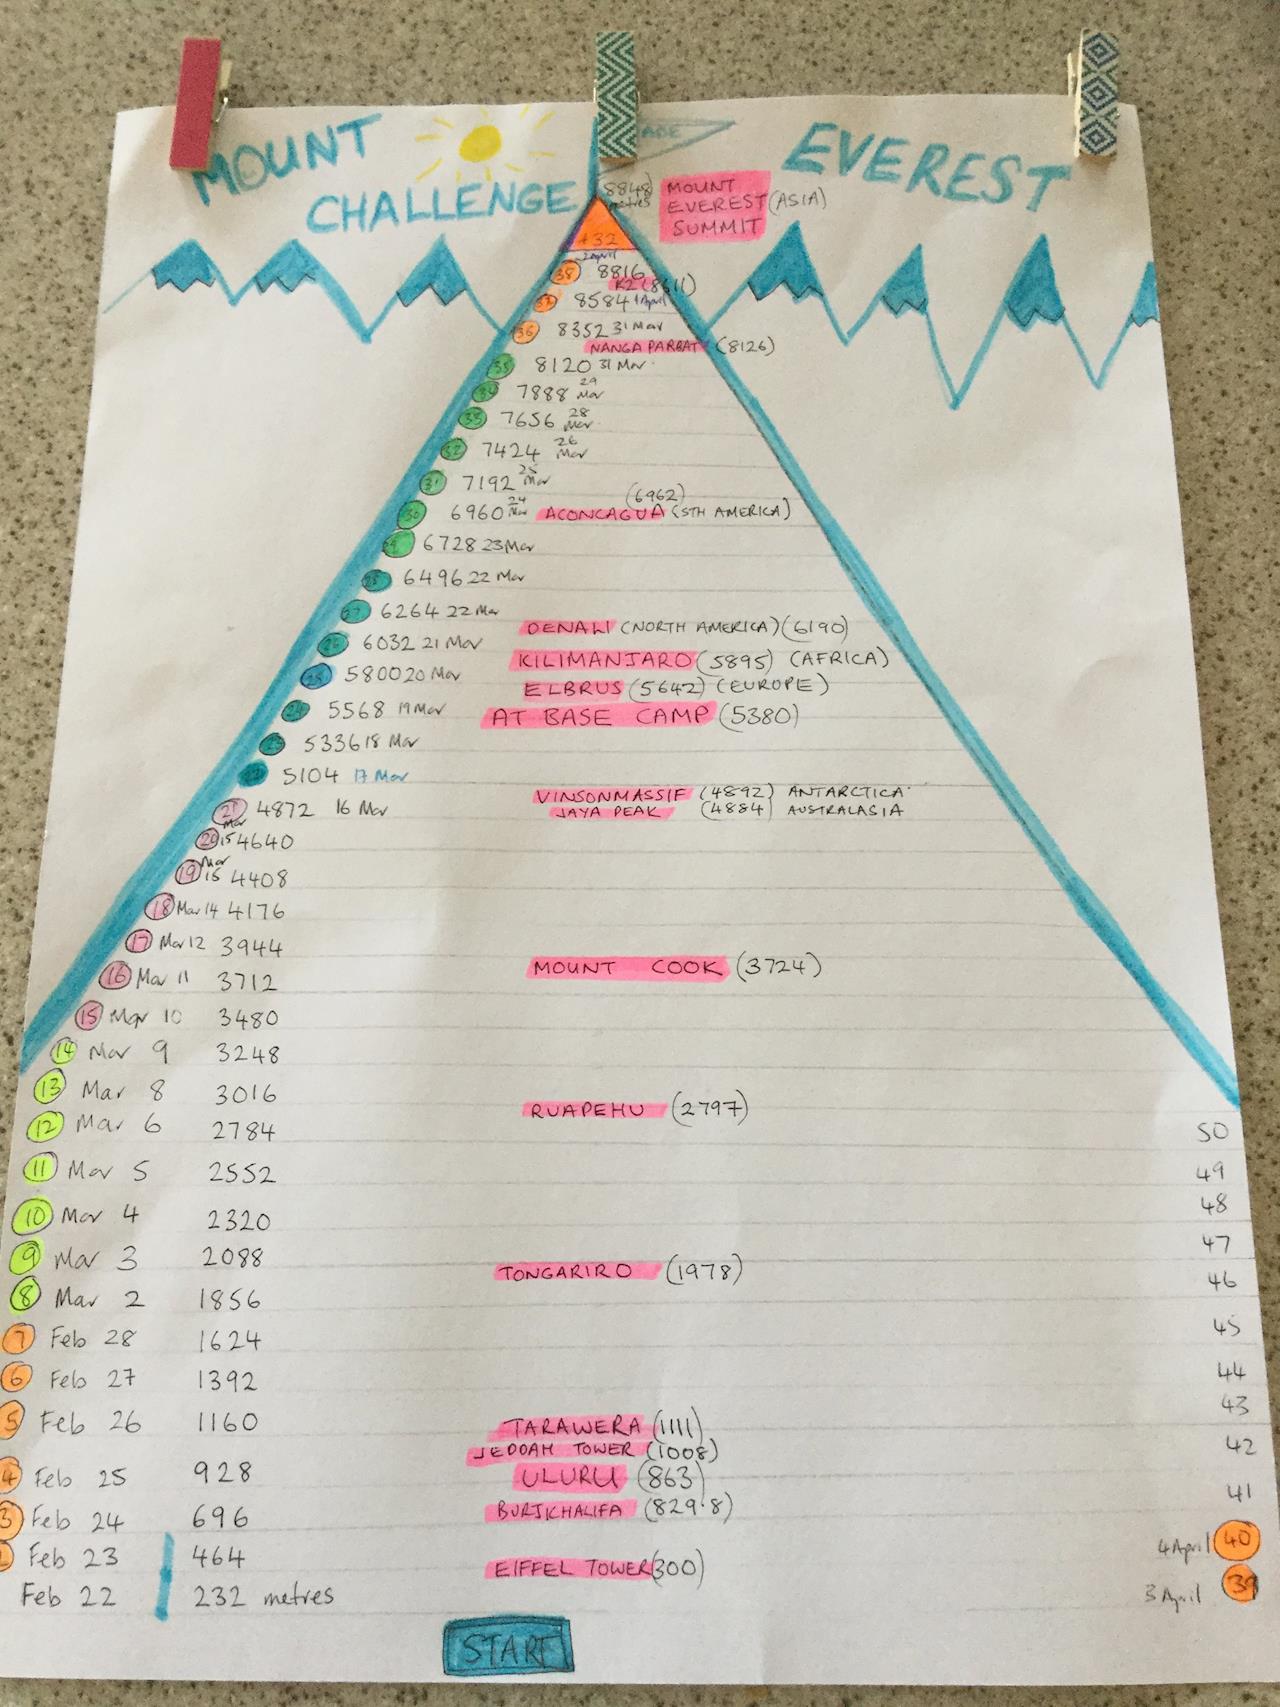 MOUNT
CHALLENGE
EVEREST
(8848) metres
MOUNT
EVEREST (ASIA)
SUMMIT
+32
2 April
38 8816
K2 (8611)
37 8584 1 April
36 8352 31 Mar
NANGA PARBAT (8126)
35 8120 31 Mar
34 7888 29 Mar
33 7656 28 Mar
32 7424 26 Mar
31 7192 25 Mar
(6962)
30 6960 24 Mar ACONCAGUA (STH AMERICA)
29 6728 23 Mar
28 6496 22 Mar
27 6264 22 Mar
DENALI (NORTH AMERICA) (6190)
26 6032 21 Mar
KILIMANJARO (5895) (AFRICA)
25 5800 20 Mar
ELBRUS (5642) (EUROPE)
24 5568 19 Mar
AT BASE CAMP (5380)
23 5336 18 Mar
22 5104 17 Mar
VINSONMASSIF (4892) ANTARCTICA
21 4872 16 Mar
JAYA PEAK (4884) AUSTRALASIA
20 Mar 15 4640
19 Mar 15 4408
18 Mar 14 4176
17 Mar 12 3944
MOUNT COOK (3724)
16 Mar 11 3712
15 Mar 10 3480
14 Mar 9 3248
13 Mar 8 3016
RUAPEHU (2797)
12 Mar 6 2784
50
11 Mar 5 2552
49
10 Mar 4 2320
48
9 Mar 3 2088
47
TONGARIRO (1978)
46
8 Mar 2 1856
7 Feb 28 1624
45
6 Feb 27 1392
44
5 Feb 26 1160
43
TARAWERA (1111)
JEDDAH TOWER (1008)
42
4 Feb 25 928
ULURU (863)
41
3 Feb 24 696
BURJKHALIFA (829.8)
4 April 40
Feb 23 464
EIFFEL TOWER (300)
3 April 39
Feb 22 232 metres
START